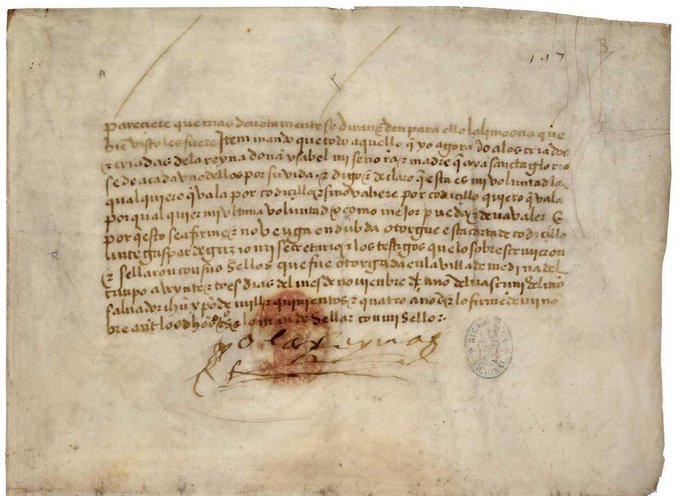 197
pareciere que mas devotamente se diran & den para ello la limosna que
bie visto les fuere Item mando que todo aquello q̃ yo agora do a los criados
& criadas dela reyna doña ysabel mi señora & madre q̃ aya sancta gloria
se de a cada uno dellos por su vida & digo & declaro q̃ esta es mi voluntad la
qual quiero q̃ vala por codicillo & si no valiere por codicillo quiero q̃ vala
por qualquier mi ultima voluntad o como mejor pueda & deva valer E
por q̃ esto sea firme & no venga en dubda otorgue esta carta de codicillo
ante gaspar de grizio mi secretario & los testigos que lo sobrescrivieron
& sellaron con sus sellos que fue otorgada en la villa de medina del
campo a veynte & tres dias del mes de noviembre año del nascimi° del nr̃o
salvador ihũ xp̃o de mill & quinientos & quatro anos & lo firme de mi no
bre ant los dhos t°s & lo mande sellar con mi sello
Yo la Reyna